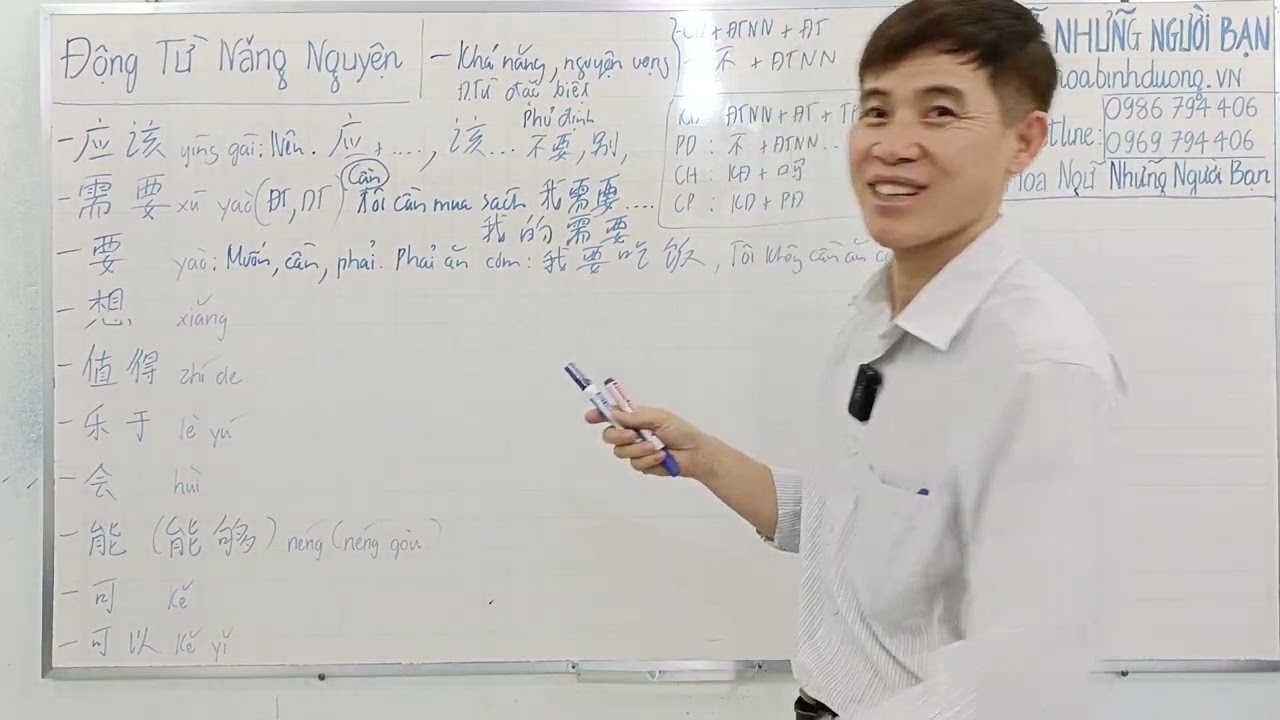 Động Từ Năng Nguyện
- Khả năng, nguyện vọng
Đ.Từ đặc biệt
Phủ định
- CN + ĐTNN + ĐT
- 不 + ĐTNN
KĐ : ĐTNN + ĐT +
PD : 不 + ĐTNN...
CH : KĐ + 吗
CP : KĐ + PĐ
NHỮNG NGƯỜI BẠN
hoabinhduong.vn
Hotline: 0986 794 406
0969 794 406
Hoa Ngữ Những Người Bạn
- 应该 yīng gāi: Nên. 应 + ...., 该... 不要, 别,
- 需要 xū yào (ĐT, DT) Cần Tôi cần mua sách 我需要....
我的需要
- 要 yào: Muốn, cần, phải. Phải ăn cơm: 我要吃饭, Tôi không cần ăn
- 想 xiǎng
- 值得 zhí de
- 乐于 lè yú
- 会 huì
- 能 (能够) néng (néng gòu)
- 可 kě
- 可以 kě yǐ